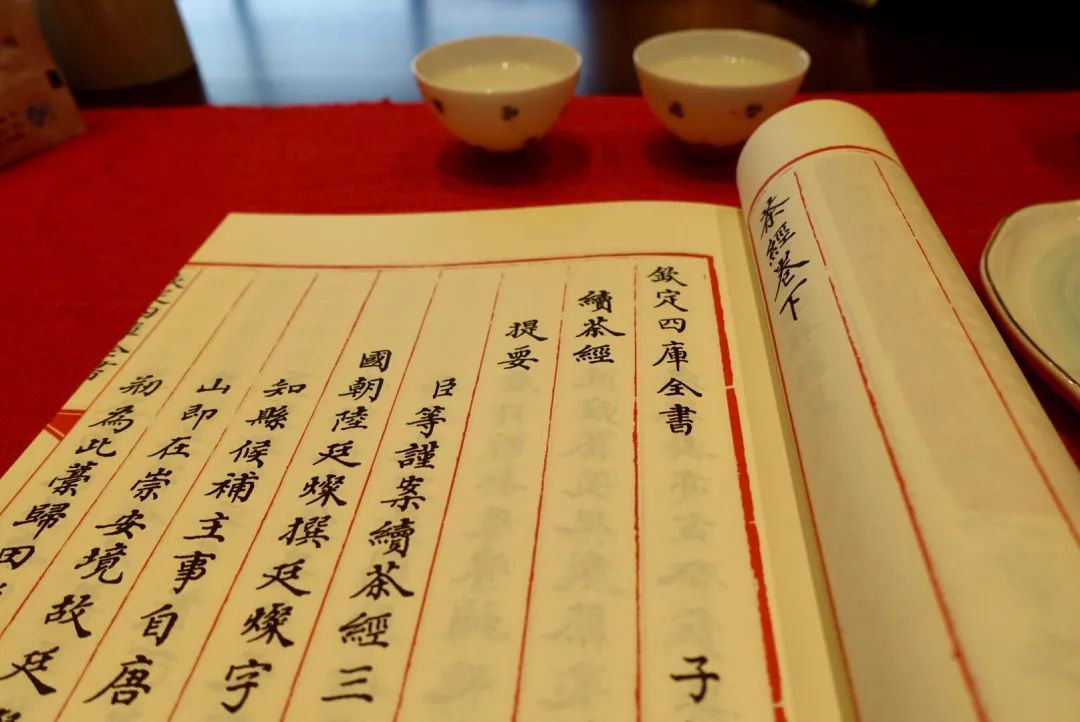 茶經卷下
欽定四庫全書 子
續茶經
提要
臣等謹案續茶經三
國朝陸廷燦撰廷燦字
知縣候補主事自唐
山即在崇安境故廷
為此藁歸田